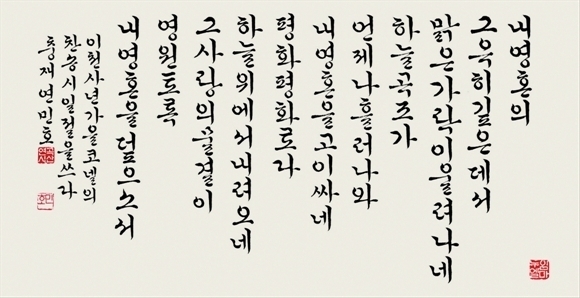 내영혼의
그윽히깊은데서
맑은가락이울려나네
하늘곡조가
언제나흘러나와
내영혼을고이싸네
평화평화로다
하늘위에서내려오네
그사랑의물결이
영원토록
내영혼을덮으소서
이천사년가을코넬의
찬송시일절을쓰다
충재연민호